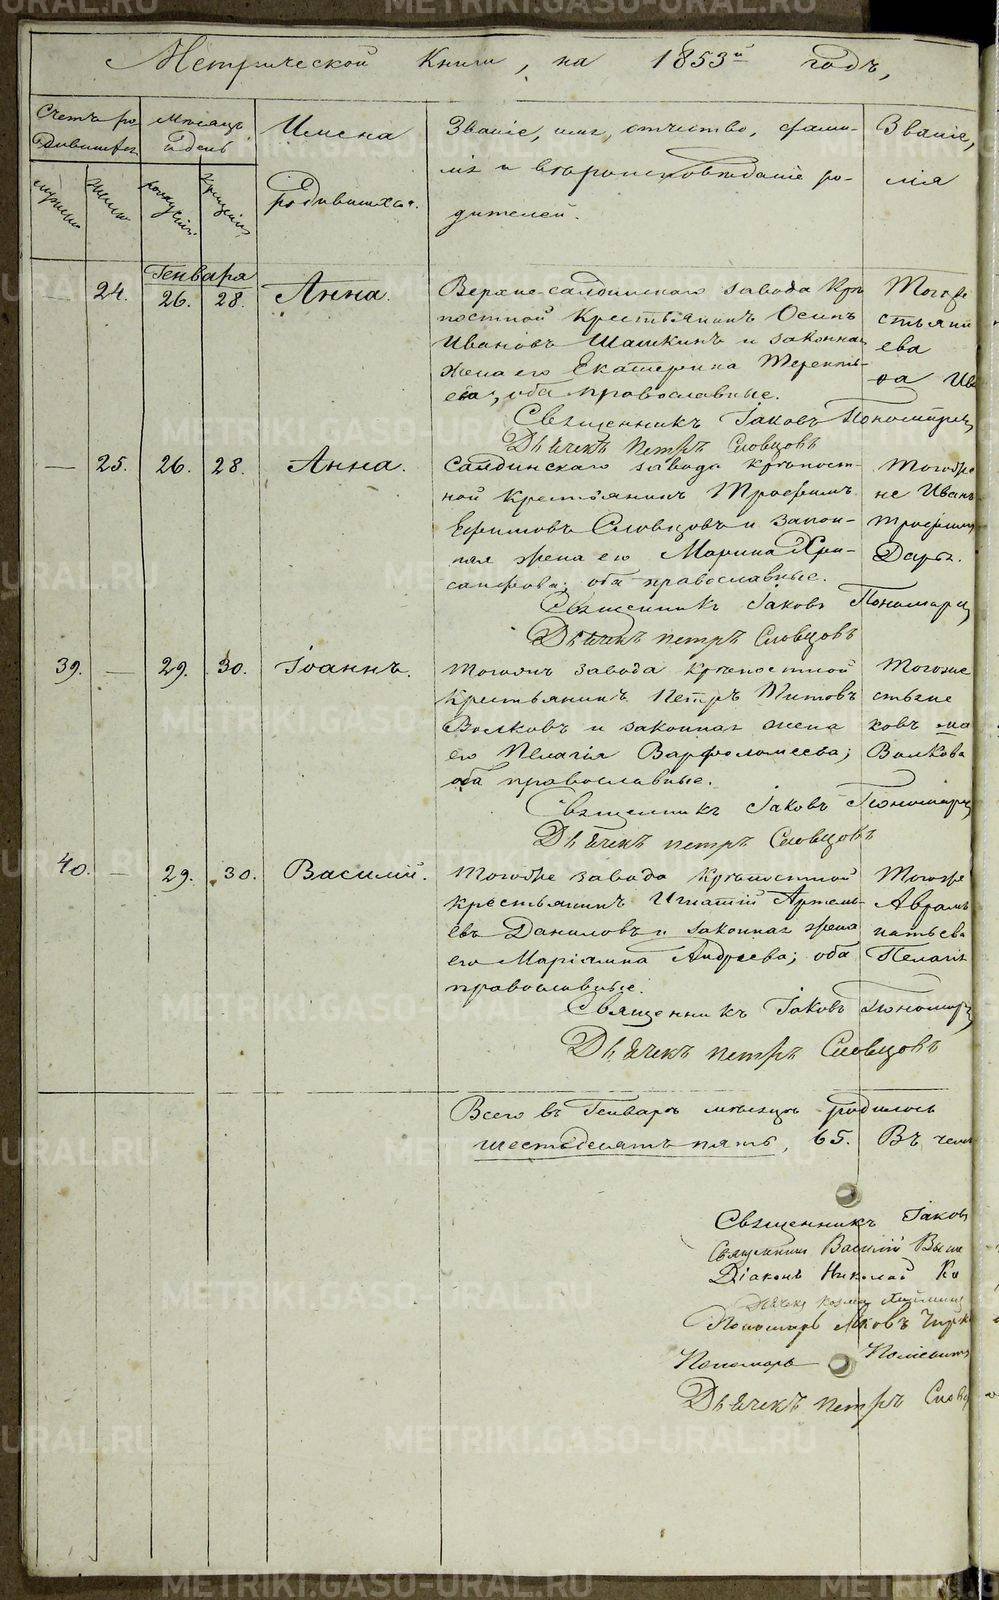 Метрической Книги, на 1853й годъ,
Счетъ ро-
дившихся
Мѣсяцъ
и день
Имена
родившихся.
Званіе, имя, отчество, фами-
лія и вѣроисповѣданіе ро-
дителей.
Званіе,
лія
мужеска
женска
рожденія
крещенія
Генваря
— 24. 26. 28. Анна.
Верхнесалдинскаго завода крѣ-
постной крестьянинъ Осипъ
Ивановъ Шашкинъ и законная
жена его Екатерина Терентье-
ва, оба православные.
Священникъ Іаковъ Пономарев
Дьячекъ Петръ Словцовъ
Тогоже
стьянин
ева
ва Ив
— 25. 26. 28. Анна.
Салдинскаго завода крѣпост-
ной крестьянинъ Трофимъ
Ефимовъ Словцовъ и закон-
ная жена его Марина Хри-
санфова; оба православные.
Священникъ Іаковъ Пономарев
Дьячекъ петръ Словцовъ
Тогоже
не Иванъ
Трофим
Дарья.
39. — 29. 30. Іоаннъ.
Тогожъ завода крѣпостной
крестьянинъ Петръ Титовъ
Волковъ и законная жена
его Пелагія Варфоломеева;
оба православные.
Священникъ Іаковъ Пономарев
Дьячекъ петръ Словцовъ
Тогоже
стьяне
ковъ
Волкова
40. — 29. 30. Василій.
Тогоже завода крѣпостной
крестьянинъ Игнатій Артемь-
евъ Даниловъ и законная жена
его Маріамна Андреева; оба
православные.
Священникъ Іаковъ Пономарев
Дьячекъ петръ Словцовъ
Тогоже
Аврамъ
натьева
Пелагія
Всего въ Генварѣ мѣсяцѣ родилось
шестьдесятъ пять, 65. Въ
Священникъ Іаковъ
Священникъ Василій
Діаконъ Николай
Дьячекъ Козма
Пономарь Яковъ
Пономарь
Дьячекъ петръ Слов
METRIKI.GASO-URAL.RU